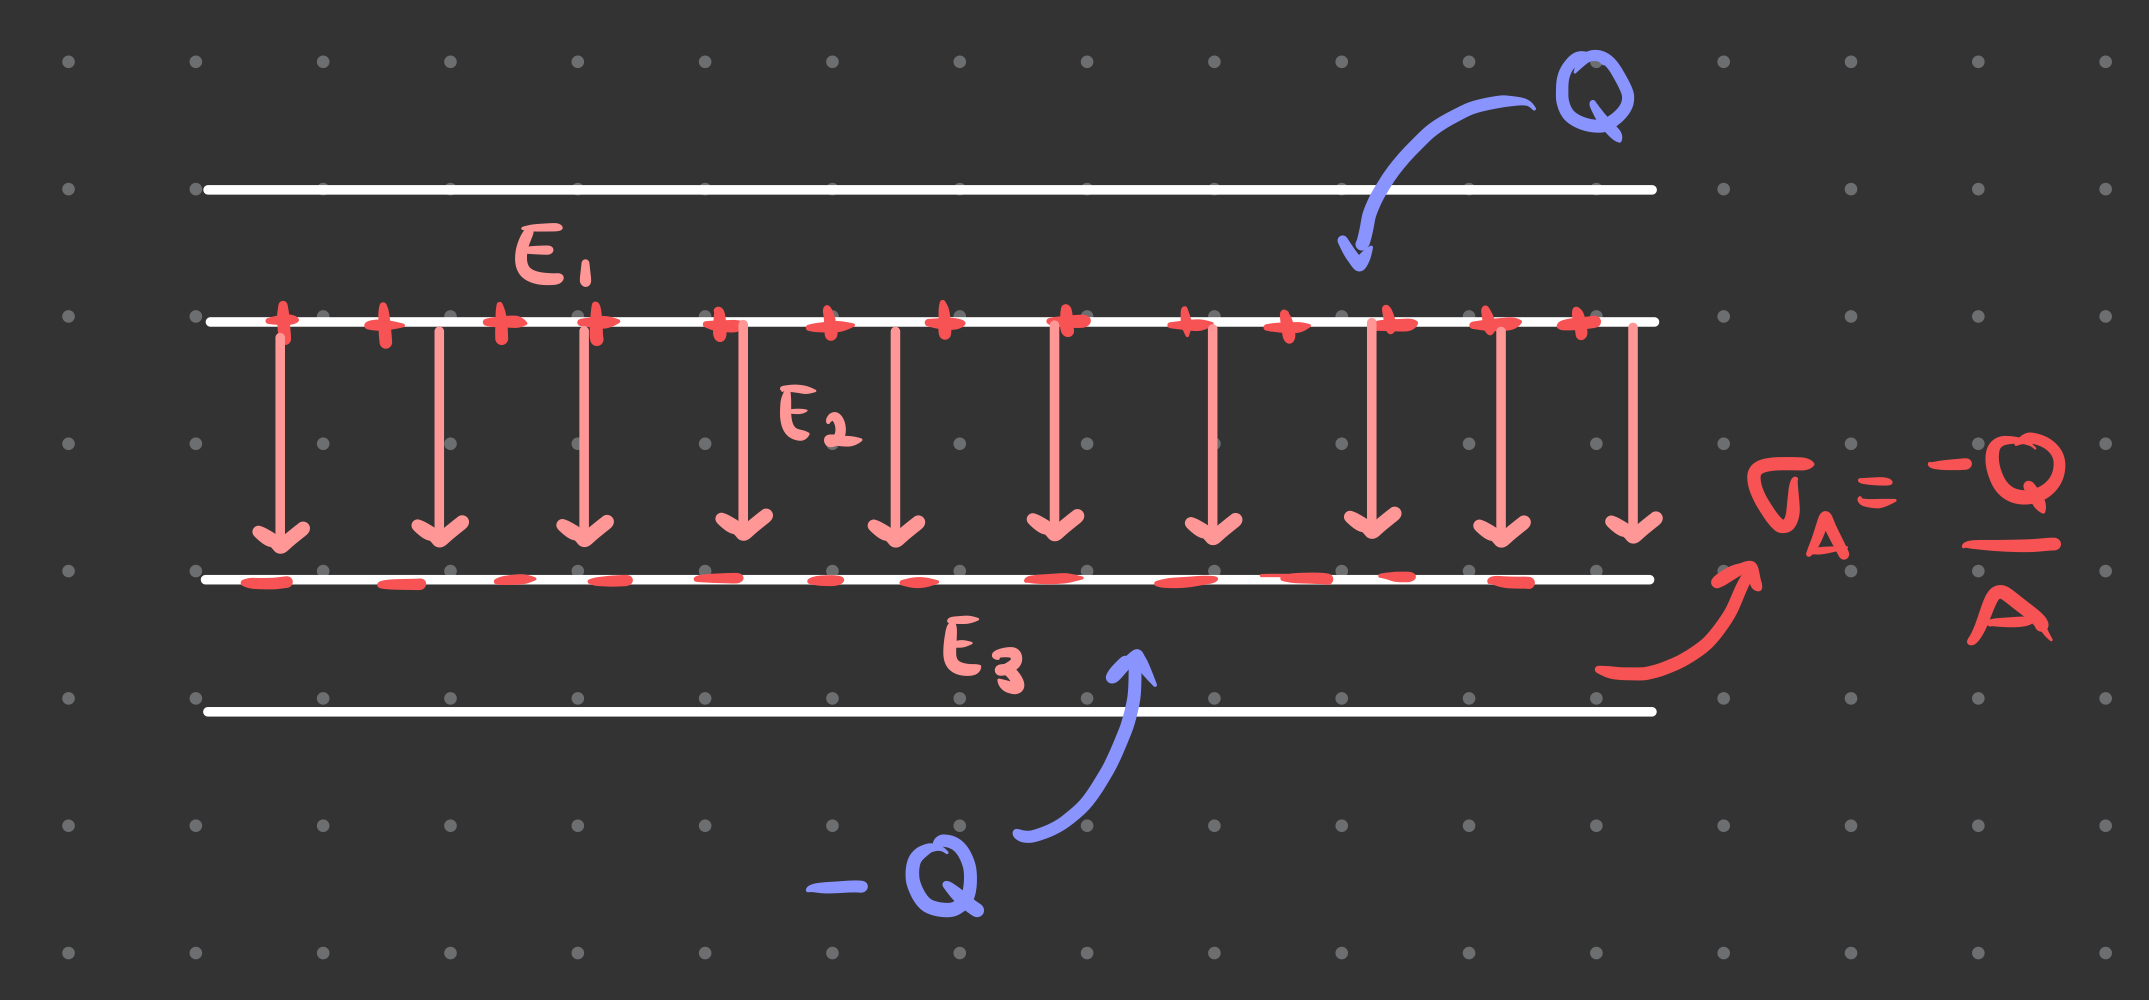 Q
E₁
E₂
σ_A = -Q/A
E₃
-Q